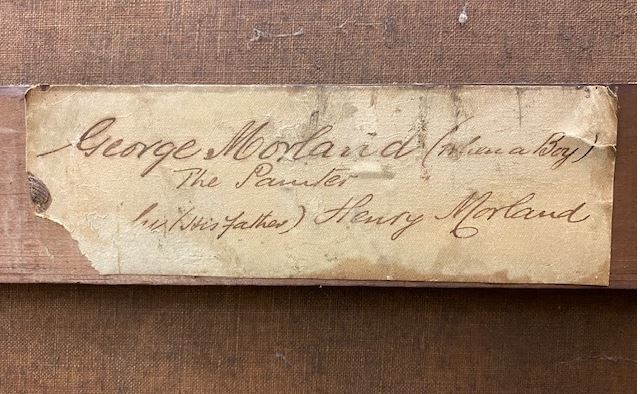 George Morland (when a Boy)
The Painter
by (His father) Henry Morland